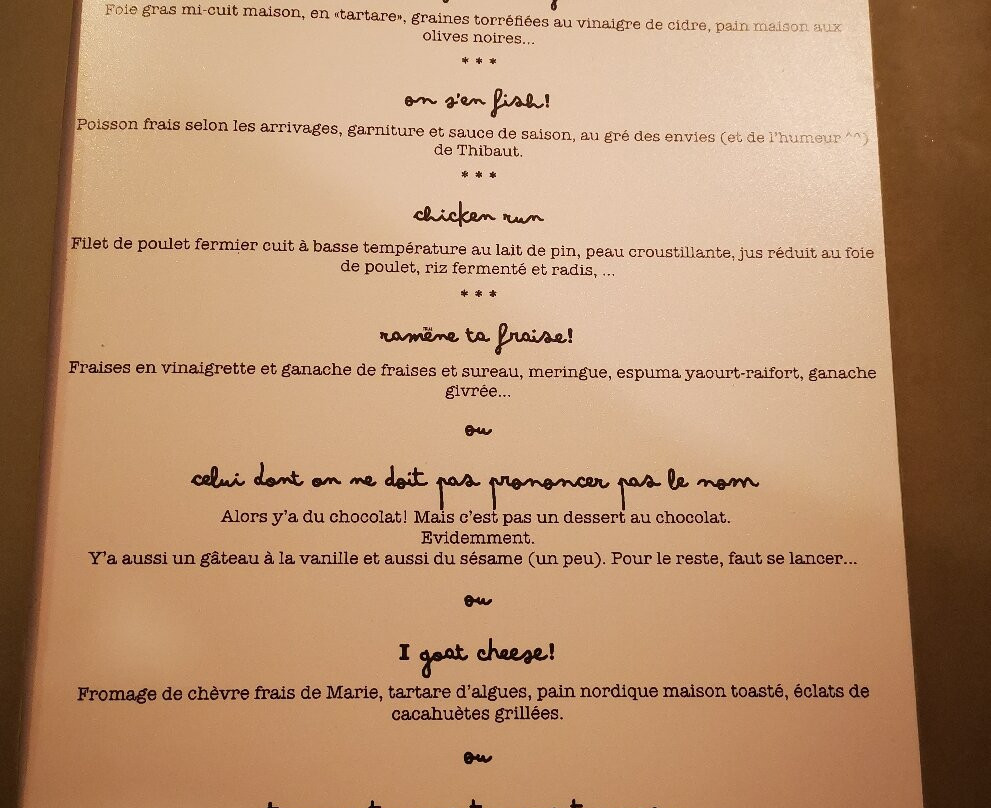 Foie gras mi-cuit maison, en «tartare», graines torréfiées au vinaigre de cidre, pain maison aux
olives noires...
* * *
on s'en fish!
Poisson frais selon les arrivages, garniture et sauce de saison, au gré des envies (et de l'humeur ^^)
de Thibaut.
* * *
chicken run
Filet de poulet fermier cuit à basse température au lait de pin, peau croustillante, jus réduit au foie
de poulet, riz fermenté et radis, ...
* * *
ramène ta fraise!
Fraises en vinaigrette et ganache de fraises et sureau, meringue, espuma yaourt-raifort, ganache
givrée...
ou
celui dont on ne doit pas prononcer pas le nom
Alors y'a du chocolat! Mais c'est pas un dessert au chocolat.
Evidemment.
Y'a aussi un gâteau à la vanille et aussi du sésame (un peu). Pour le reste, faut se lancer...
ou
I goat cheese!
Fromage de chèvre frais de Marie, tartare d'algues, pain nordique maison toasté, éclats de
cacahuètes grillées.
ou